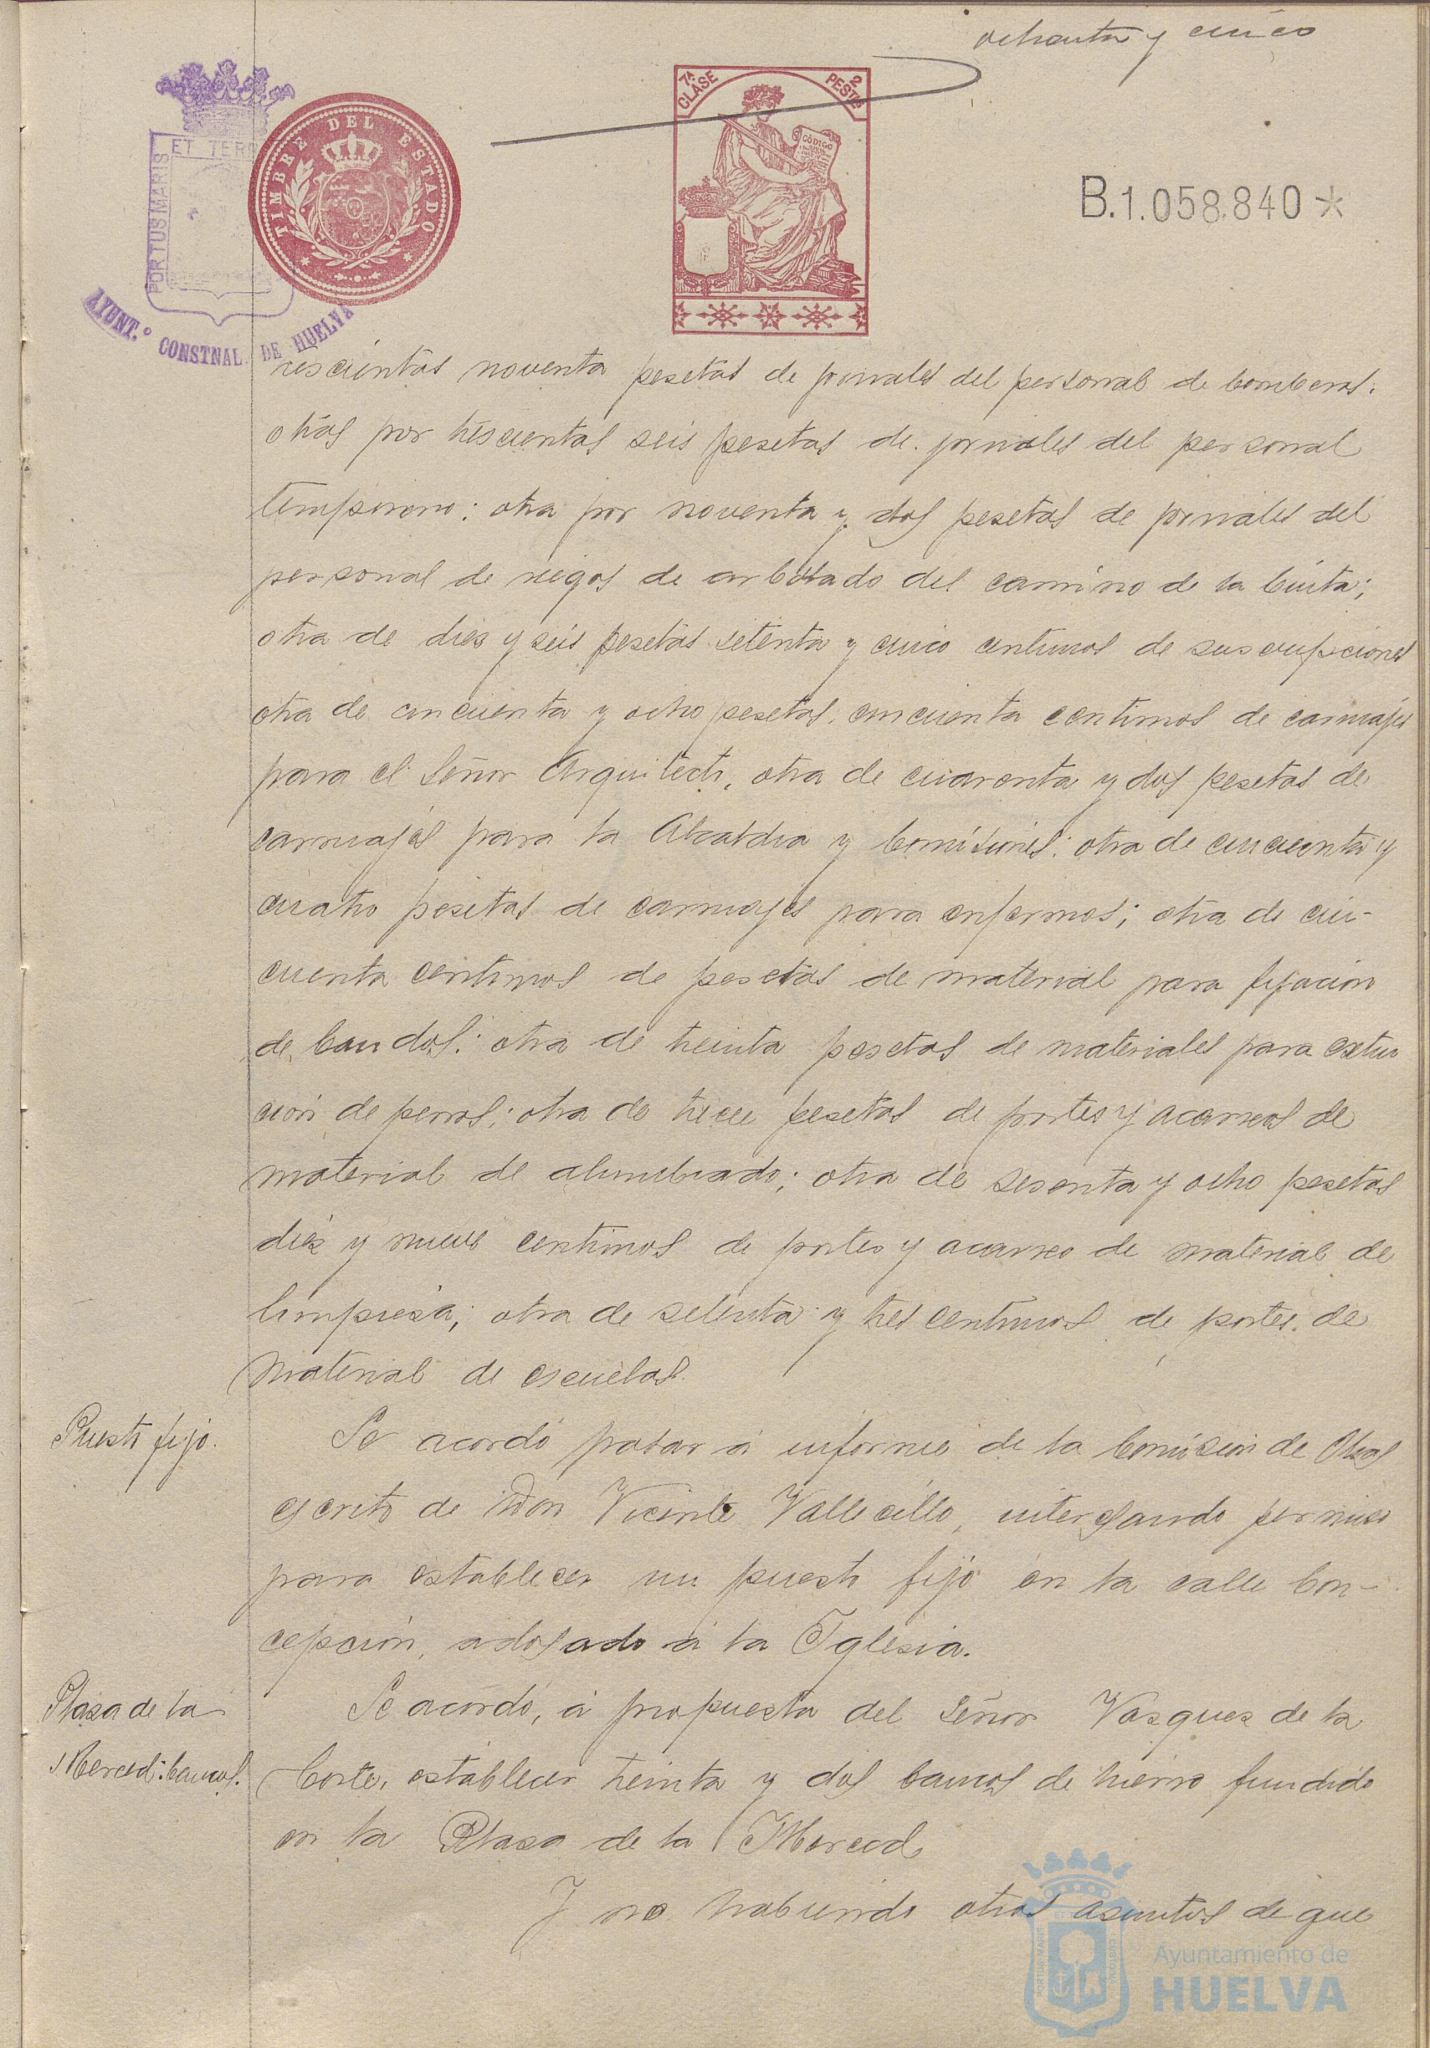 ochenta y cinco
7ª CLASE
2 PESTAS
CÓDIGO
TIMBRE DEL ESTADO
PORTUS MARIS
ET TERR
AYUNT.º CONSTNAL. DE HUELVA
B.1.058.840*
rescientas noventa pesetas de jornales del personal de bomberos:
otras por trescientas seis pesetas de jornales del personal
temporero; otra por noventa y dos pesetas de jornales del
personal de riegos de arbolado del camino de la Cinta;
otra de diez y seis pesetas setenta y cinco centimos de suscripciones
otra de cincuenta y ocho pesetas cincuenta centimos de carruajes
para el Señor Arquitecto, otra de cuarenta y dos pesetas de
carruajes para la Alcaldia y Comisiones; otra de cincuenta y
cuatro pesetas de carruajes para enfermos; otra de cin-
cuenta centimos de pesetas de material para fijación
de bandos; otra de treinta pesetas de materiales para extin
ción de perros; otra de trece pesetas de portes y acarreos de
material de alumbrado; otra de sesenta y ocho pesetas
diez y nueve centimos de portes y acarreo de material de
limpieza; otra de setenta y tres centimos de portes de
material de escuelas.
Puesto fijo.
Se acordó pasar á informe de la Comisión de Obras
escrito de Don Vicente Vallecillo, interesando permiso
para establecer un puesto fijo en la calle Con-
cepción, adosado á la Iglesia.
Plaza de la
Merced: bancos.
Se acordó, á propuesta del Señor Vazquez de la
Corte, establecer treinta y dos bancos de hierro fundido
en la Plaza de la Merced
Y no habiendo otros asuntos de que
Ayuntamiento de
HUELVA